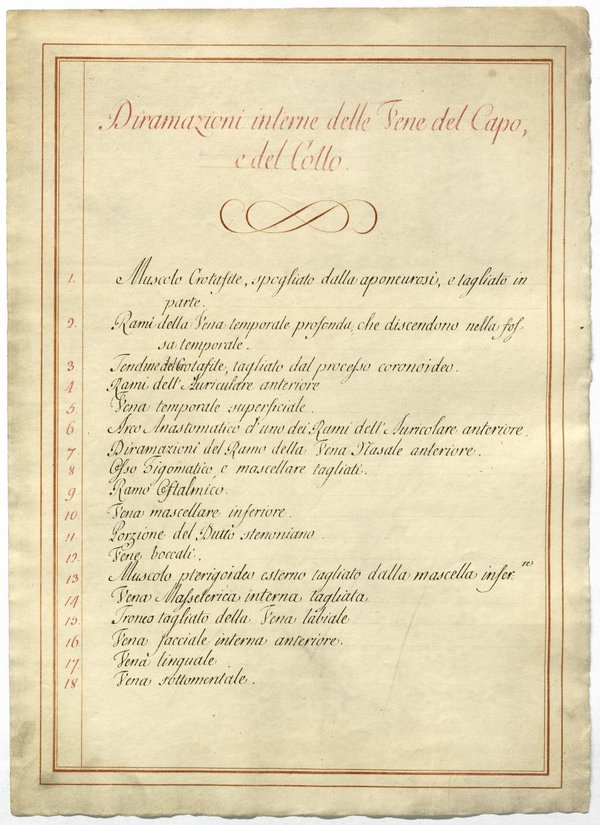 Diramazioni interne delle Vene del Capo,
e del Collo.
1. Muscolo Crotafite, spogliato dalla aponeurosi, e tagliato in
parte.
2. Rami della Vena temporale profonda, che discendono nella fos-
sa temporale.
3. Tendine del Crotafite, tagliato dal processo coronoideo.
4 Rami dell'Auriculare anteriore
5 Vena temporale superficiale.
6. Arco Anastomatico d'uno dei Rami dell'Auricolare anteriore.
7. Diramazioni del Ramo della Vena Nasale anteriore.
8 Osso Zigomatico, e mascellare tagliati.
9 Ramo Oftalmico.
10. Vena mascellare inferiore.
11 Porzione del Dutto stenoniano.
12. Vene boccali.
13 Muscolo pterigoideo esterno tagliato dalla mascella infer.re
14 Vena Masseterica interna tagliata
15. Tronco tagliato della Vena labiale
16. Vena facciale interna anteriore.
17. Vena linguale.
18 Vena sottomentale.